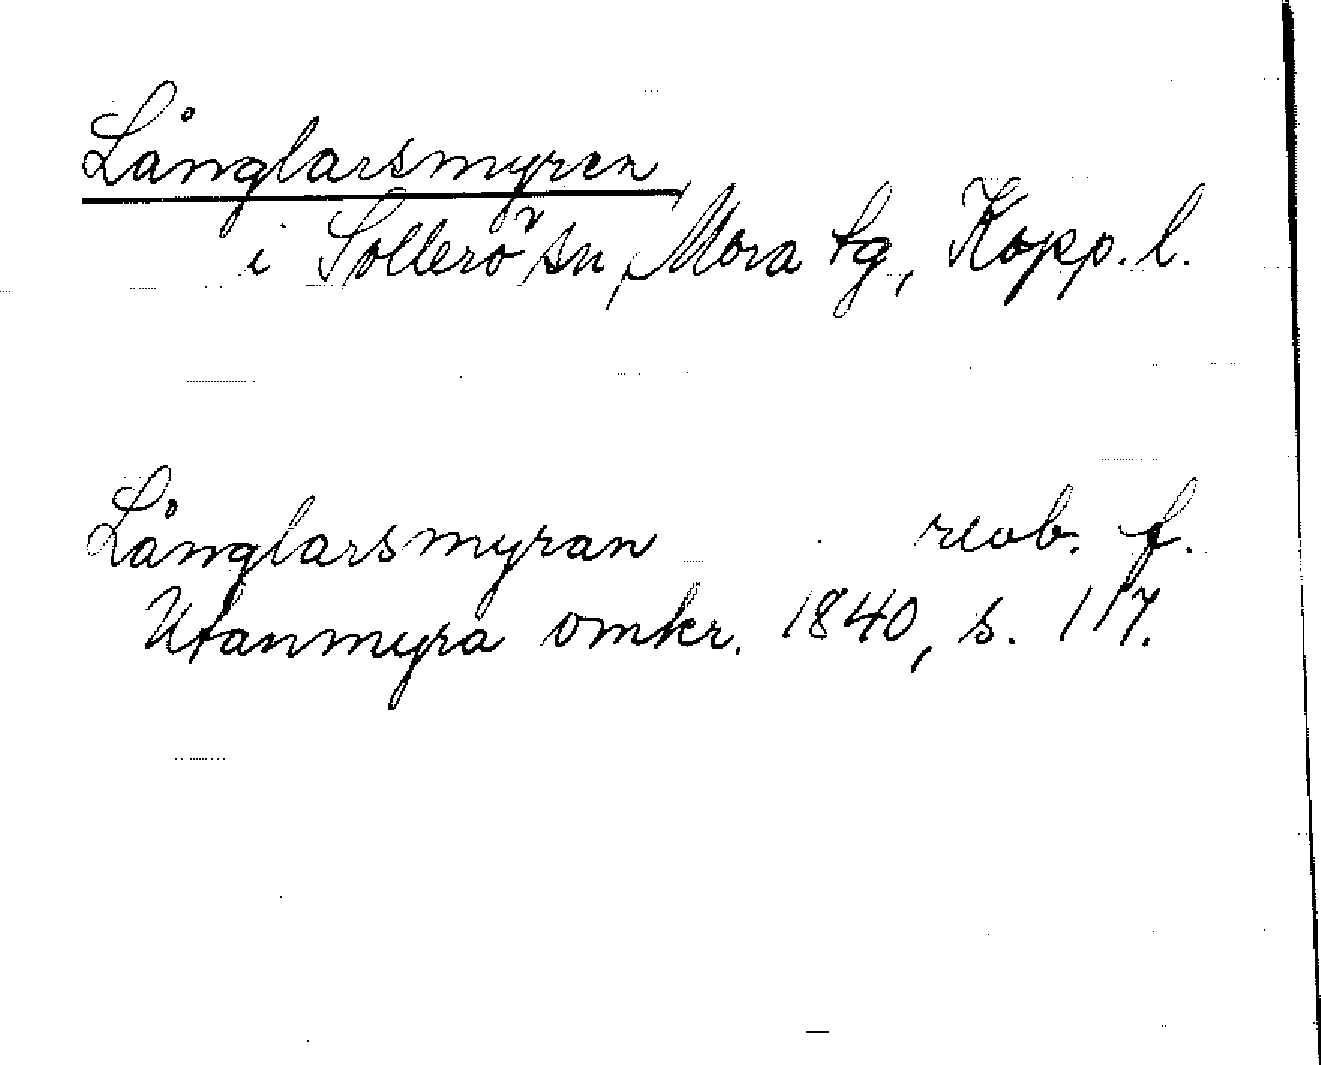 Långlarsmyren
i Sollerö sn, Mora tg, Kopp. l.
Långlarsmyran revb. f.
Utanmyra omkr. 1840, s. 117.